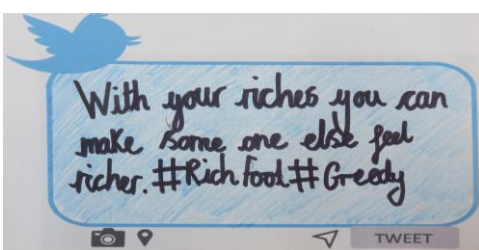 With your riches you can
make some one else feel
richer. #Rich fool # Greedy
TWEET